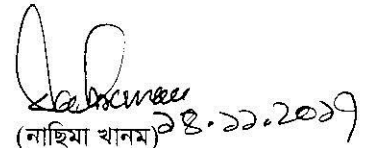 (নাছিমা খানম) ২৪.১১.২০১৭